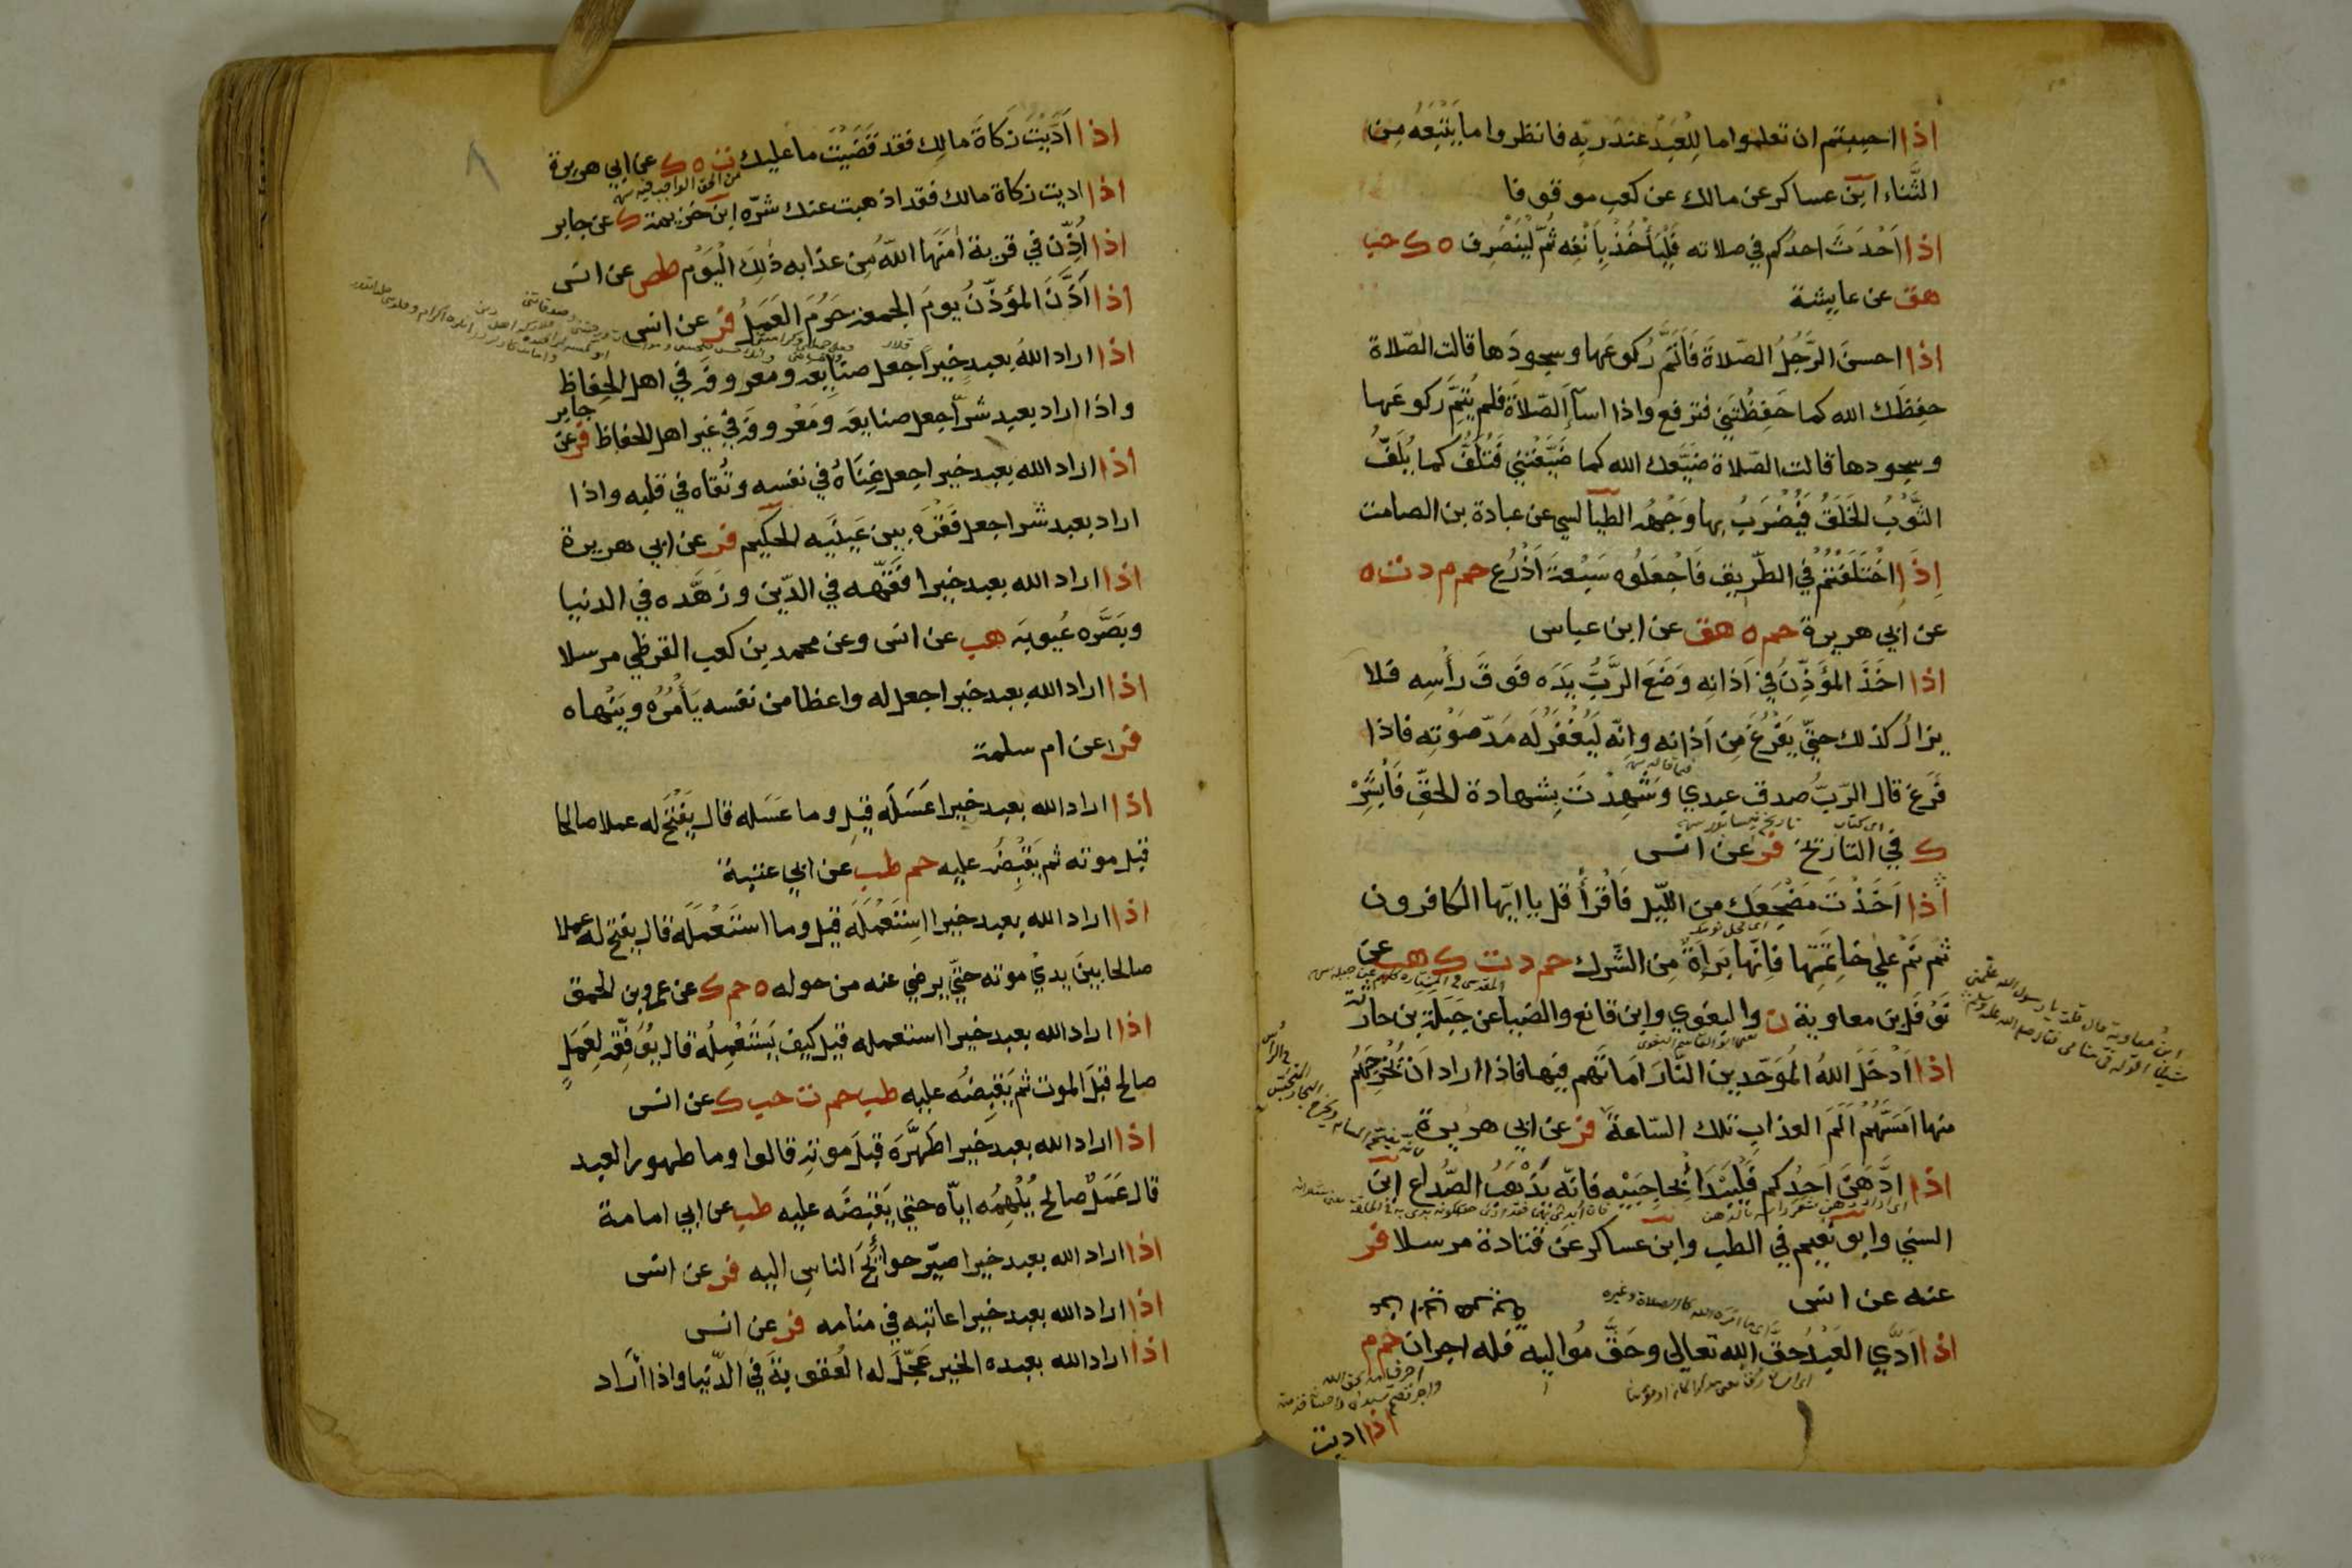 اذا احببتم ان تعلموا ما للعبد عند ربه فانظروا ما يتبعه من
الثناء ابن عساكر عن مالك عن كعب موقوفا
اذا احدث احدكم في صلاته فليأخذ بانفه ثم لينصرف ه ك حب
هق عن عايشة
اذا احسن الرجل الصلاة فاتم ركوعها وسجودها قالت الصلاة
حفظك الله كما حفظتني فترفع واذا اسآء الصلاة فلم يتم ركوعها
وسجودها قالت الصلاة ضيعك الله كما ضيعتني فتلف كما يلف
الثوب الخلق فيضرب بها وجهه الطيالسي عن عبادة بن الصامت
اذا اختلفتم في الطريق فاجعلوه سبعة اذرع حم م د ت ه
عن ابي هريرة حم ه هق عن ابن عباس
اذا اخذ المؤذن في اذانه وضع الرب يده فوق رأسه فلا
يزال كذلك حتى يفرغ من اذانه وانه ليغفر له مد صوته فاذا
فرغ قال الرب صدق عبدي وشهدت بشهادة الحق فابشر
ك في التاريخ فر عن انس
اذا اخذت مضجعك من الليل فاقرأ قل يا ايها الكافرون
ثم نم على خاتمتها فانها براة من الشرك حم د ت ك هب عن
نوفل بن معاوية ن والبغوي وابن قانع والضيا عن جبلة بن حارثة
اذا ادخل الله الموحدين النار اماتهم فيها فاذا اراد ان يخرجهم
منها امسهم الم العذاب تلك الساعة فر عن ابي هريرة
اذا ادهن احدكم فليبدأ بحاجبيه فانه يذهب الصداع ابن
السني وابو نعيم في الطب وابن عساكر عن قتادة مرسلا فر
عنه عن انس
اذا ادي العبد حق الله تعالى وحق مواليه فله اجران حم م
اذا اديت
اذا اديت زكاة مالك فقد قضيت ما عليك ت ه ك عن ابي هريرة
من الحق الواجب فيه
اذا اديت زكاة مالك فقد اذهبت عنك شره ابن خزيمة ك عن جابر
اذا اذن في قرية امنها الله من عذابه ذلك اليوم طص عن انس
اذا اذن المؤذن يوم الجمعة حرم العمل فر عن انس
اذا اراد الله بعبد خيرا جعل صنايعه ومعروفه في اهل الحفاظ
واذا اراد بعبد شرا جعل صنايعه ومعروفه في غير اهل الحفاظ فر عن جابر
اذا اراد الله بعبد خيرا جعل غناه في نفسه وتقاه في قلبه واذا
اراد بعبد شرا جعل فقره بين عينيه الحكيم فر عن ابي هريرة
اذا اراد الله بعبد خيرا فقهه في الدين وزهده في الدنيا
وبصره عيوبه هب عن انس وعن محمد بن كعب القرظي مرسلا
اذا اراد الله بعبد خيرا جعل له واعظا من نفسه يأمره وينهاه
فر عن ام سلمة
اذا اراد الله بعبد خيرا عسله قيل وما عسله قال يفتح له عملا صالحا
قبل موته ثم يقبض عليه حم طب عن ابي عنبة
اذا اراد الله بعبد خيرا استعمله قيل وما استعمله قال يفتح له عملا
صالحا بين يدي موته حتى يرضي عنه من حوله ه حم ك عن عمرو بن الحمق
اذا اراد الله بعبد خيرا استعمله قيل كيف يستعمله قال يوفقه لعمل
صالح قبل الموت ثم يقبضه عليه طب حم ت حب ك عن انس
اذا اراد الله بعبد خيرا طهره قبل موته قالوا وما طهور العبد
قال عمل صالح يلهمه اياه حتى يقبضه عليه طب عن ابي امامة
اذا اراد الله بعبد خيرا صير حوائج الناس اليه فر عن انس
اذا اراد الله بعبد خيرا عاتبه في منامه فر عن انس
اذا اراد الله بعبده الخير عجل له العقوبة في الدنيا واذا اراد